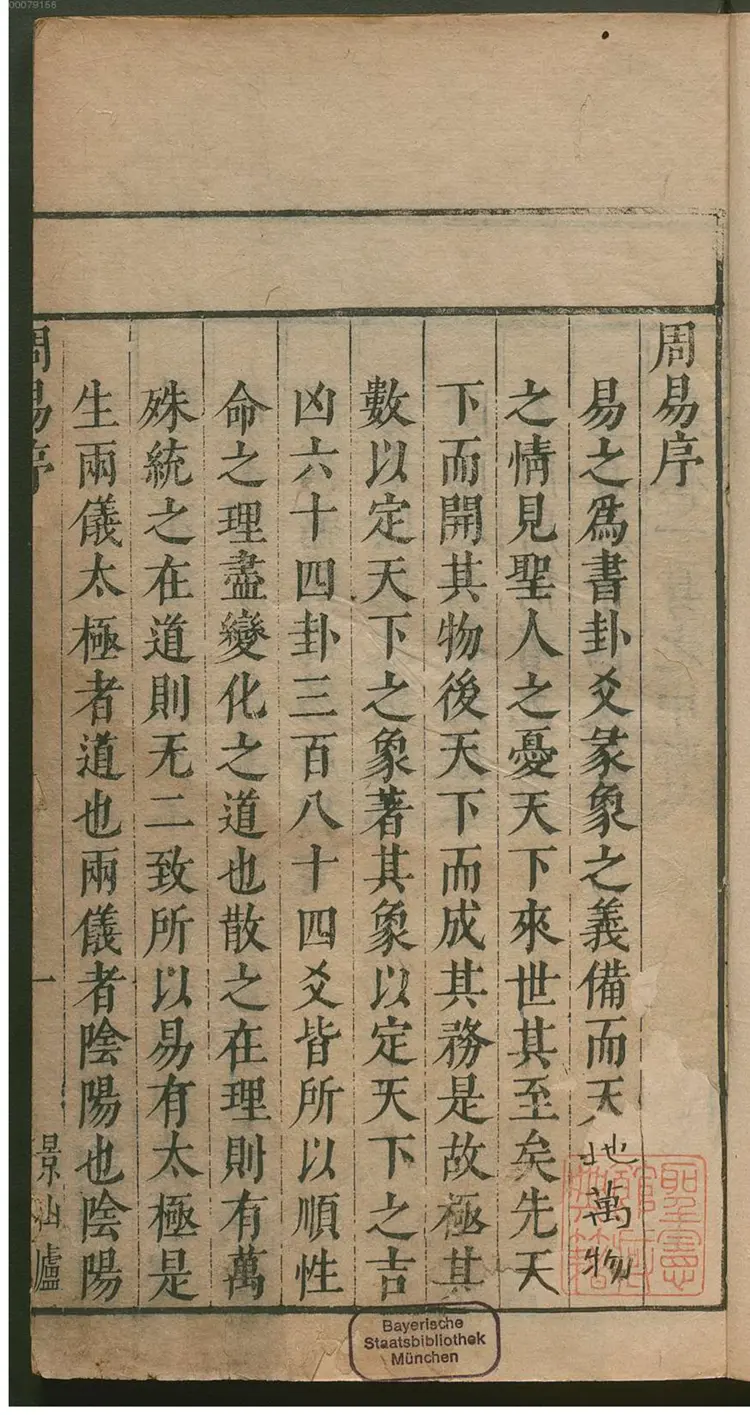 00079156
周易序
易之爲書卦爻彖象之義備而天地萬物
之情見聖人之憂天下來世其至矣先天
下而開其物後天下而成其務是故極其
數以定天下之象著其象以定天下之吉
凶六十四卦三百八十四爻皆所以順性
命之理盡變化之道也散之在理則有萬
殊統之在道則无二致所以易有太極是
生兩儀太極者道也兩儀者陰陽也陰陽
周易序
一
景山廬
Bayerische
Staatsbibliothek
München